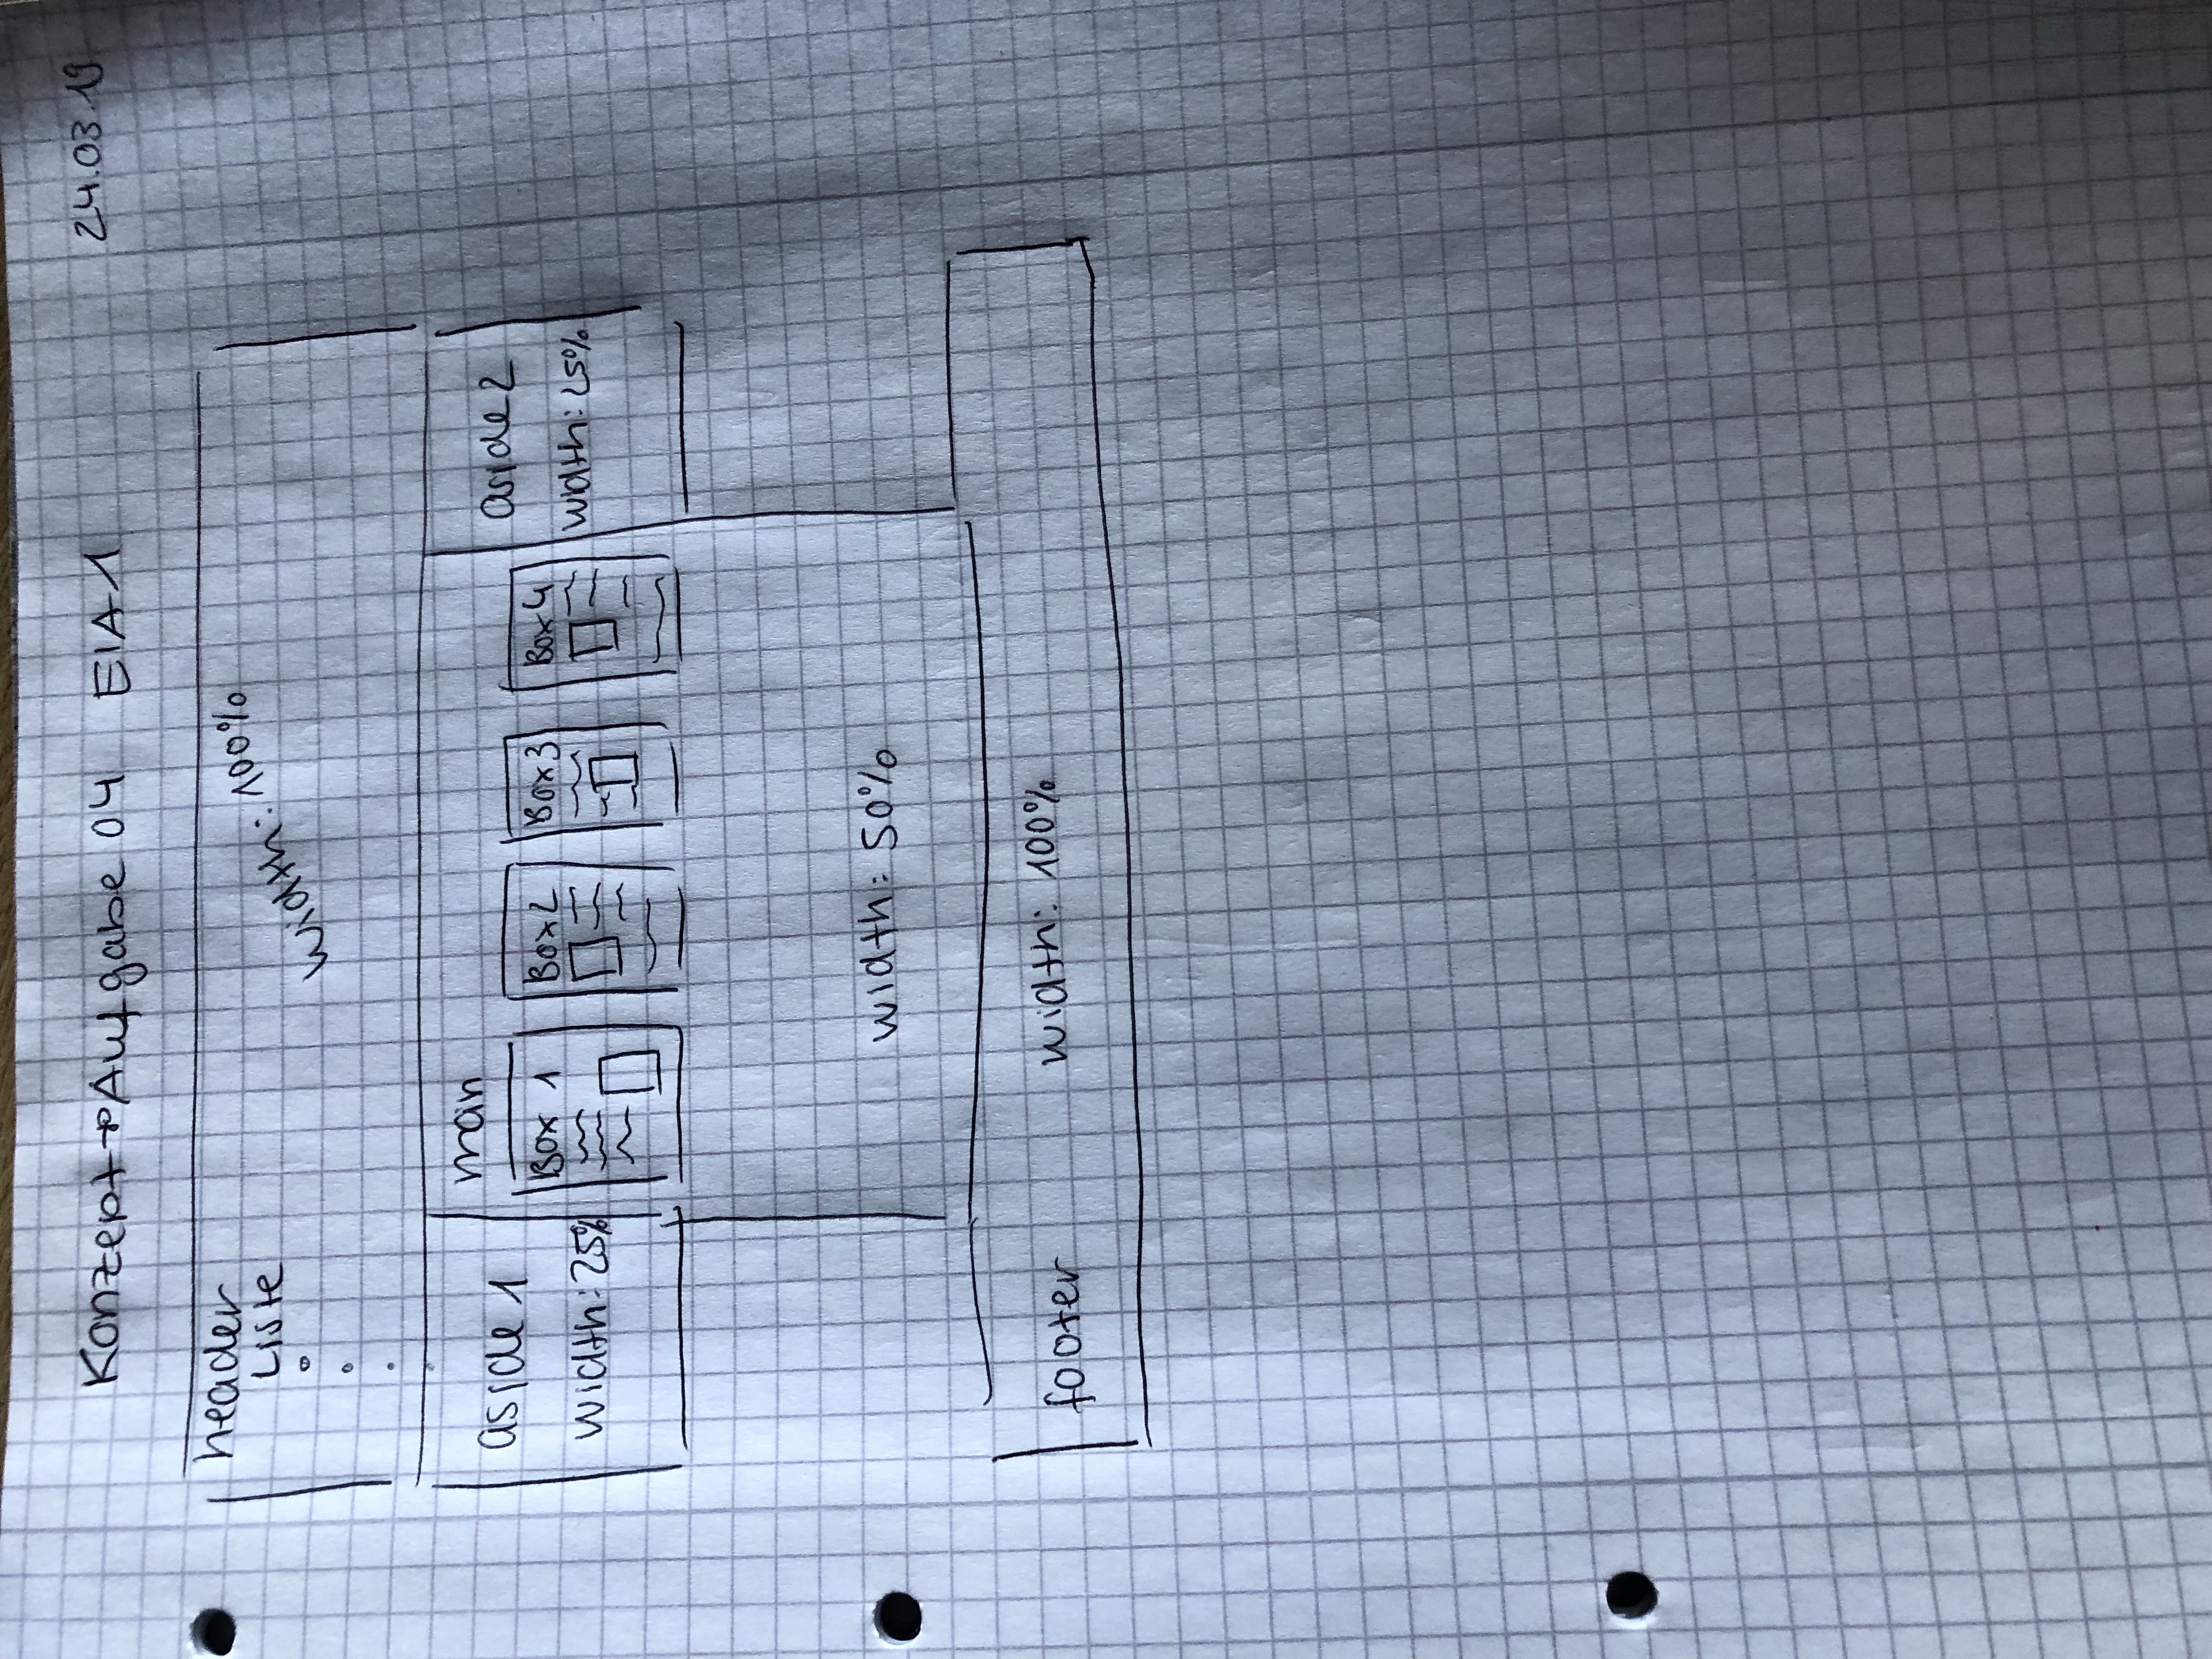 Konzept → Aufgabe 04 EIA 1 24.03.19
header
Liste
width: 100%
aside 1
width: 25%
main
Box 1
Box 2
Box 3
Box 4
width: 50%
aside 2
width: 25%
footer width: 100%